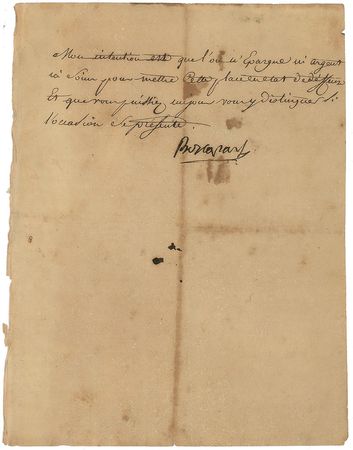 Mon intention est que l'on n'Epargne ni argent
ni Soins pour mettre Cette place en etat de deffense
Et que vous puissiez un jour vous y distinguer Si
l'occasion Se présente.